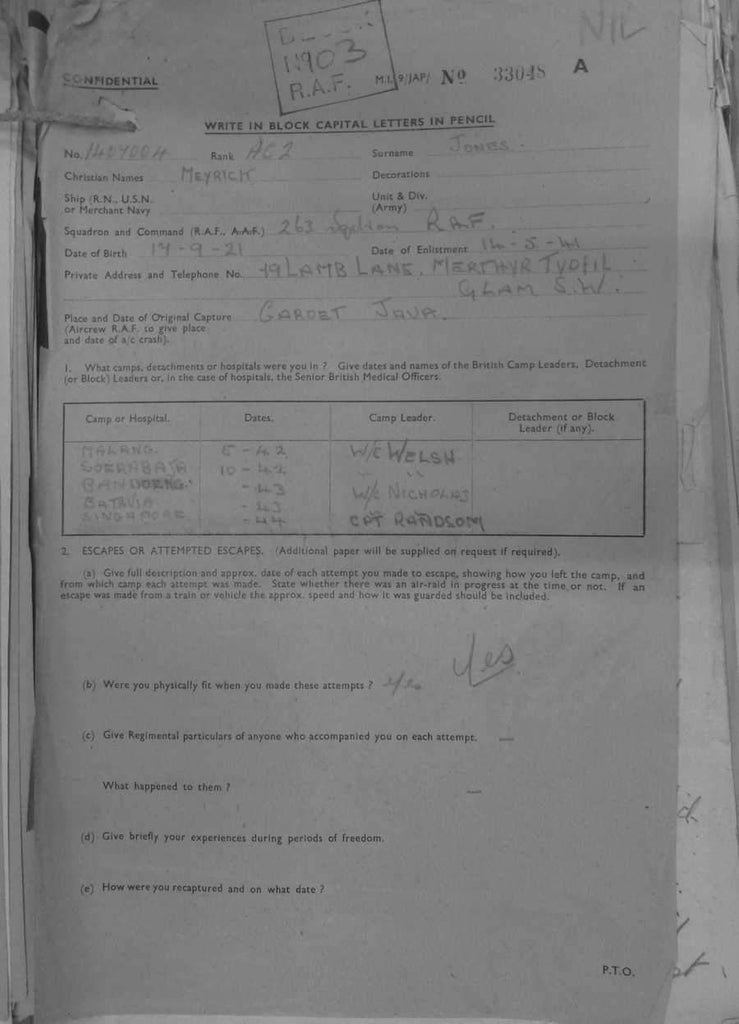 NIL
11903
R.A.F.
CONFIDENTIAL
M.I.9/JAP/ No 33048 A
WRITE IN BLOCK CAPITAL LETTERS IN PENCIL
No. 1407004 Rank AC2 Surname JONES.
Christian Names MEYRICK Decorations
Ship (R.N., U.S.N. Unit & Div.
or Merchant Navy (Army)
Squadron and Command (R.A.F., A.A.F.) 263 R.A.F.
Date of Birth 17-9-21 Date of Enlistment 14-5-41
Private Address and Telephone No. 49 LAMB LANE, MERTHYR TYDFIL
GLAM S.W.
Place and Date of Original Capture GAROET JAVA.
(Aircrew R.A.F. to give place
and date of a/c crash).
1. What camps, detachments or hospitals were you in ? Give dates and names of the British Camp Leaders, Detachment
(or Block) Leaders or, in the case of hospitals, the Senior British Medical Officers.
Camp or Hospital. Dates. Camp Leader. Detachment or Block
Leader (if any).
MALANG. 5-42 W/C WELSH
SOERABAJA 10-42 " "
BANDOENG. -43 W/C NICHOLAS
BATAVIA -43
SINGAPORE -44 CPT RANDSOM
2. ESCAPES OR ATTEMPTED ESCAPES. (Additional paper will be supplied on request if required).
(a) Give full description and approx. date of each attempt you made to escape, showing how you left the camp, and
from which camp each attempt was made. State whether there was an air-raid in progress at the time or not. If an
escape was made from a train or vehicle the approx. speed and how it was guarded should be included.
Yes
(b) Were you physically fit when you made these attempts ? Yes
(c) Give Regimental particulars of anyone who accompanied you on each attempt. —
What happened to them ? —
(d) Give briefly your experiences during periods of freedom.
(e) How were you recaptured and on what date ?
P.T.O.